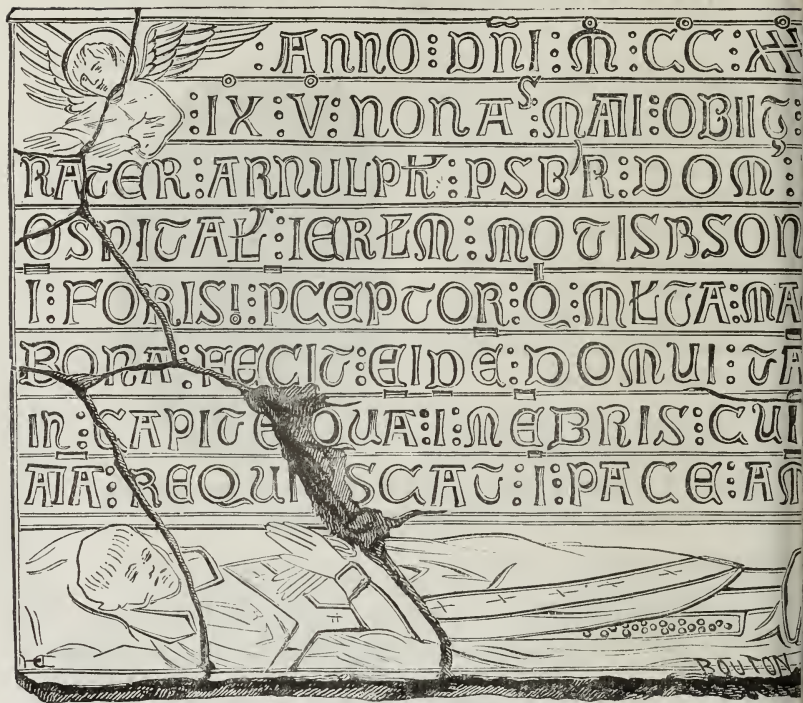 : ANNO : DNI : M : CC : XX
: IX : V : NONAS : MAII : OBIIT :
RATER : ARNULPH : PSBR : DOM :
OSPITAL : IERLM : MOTISBSON
I : FORIS! : PCEPTOR : Q : MLTA : MA
BONA : FECIT : EIDE : DOMUI : TA
IN : CAPITE QUA : I : MEBRIS : CUI
AIA : REQUI SCAT : I : PACE : AM
BOUTON